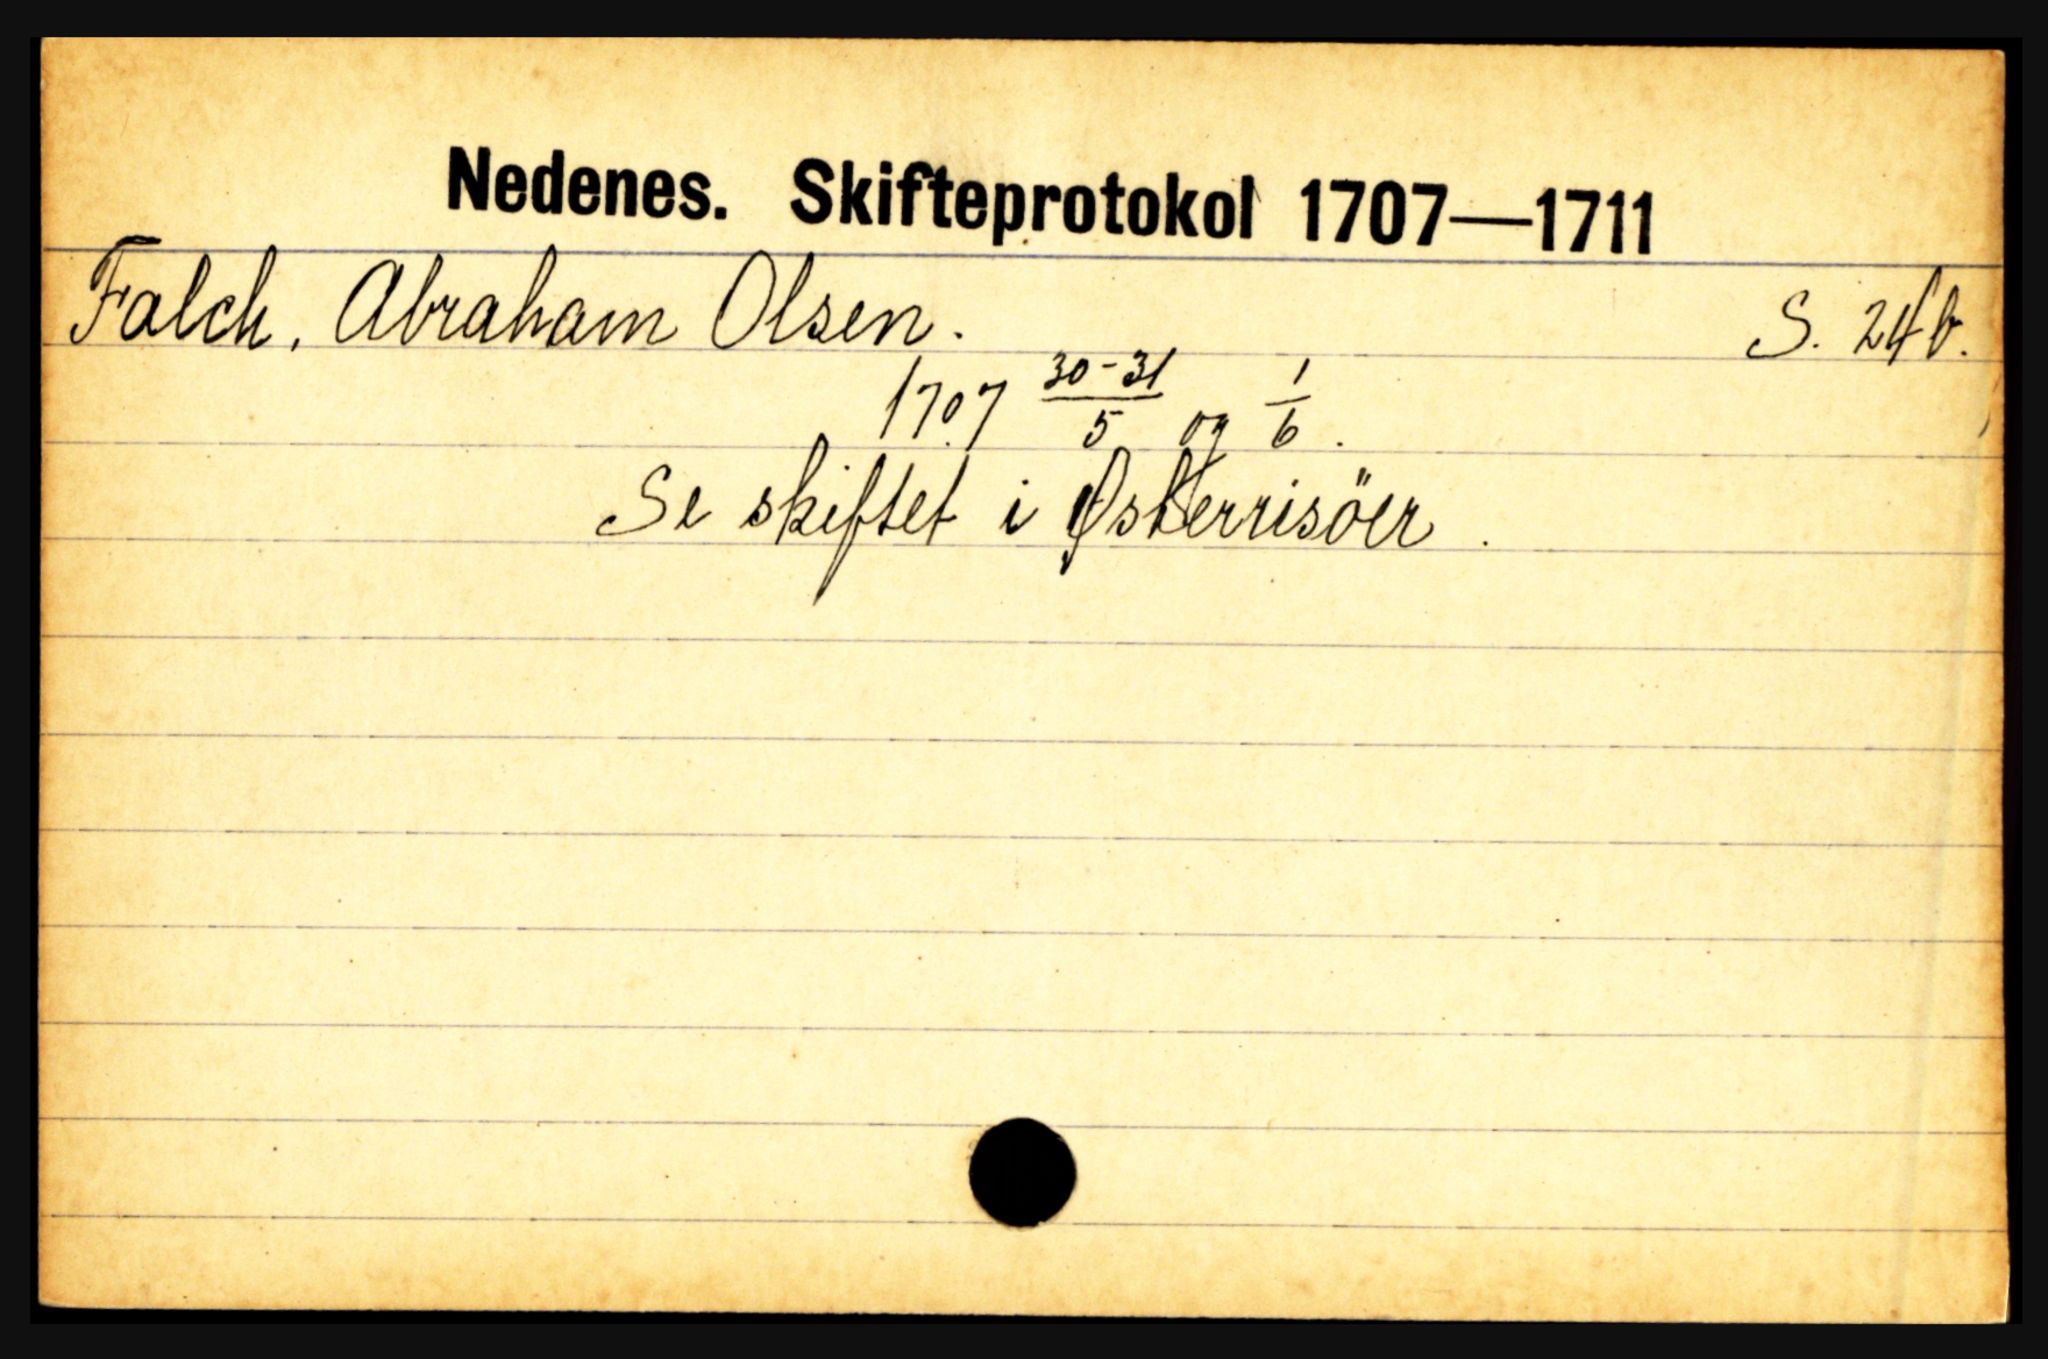 Nedenes. Skifteprotokol 1707—1711
Falch, Abraham Olsen. S. 24b.
1707 30-31/5 og 1/6.
Se skiftet i Østerrisöer.